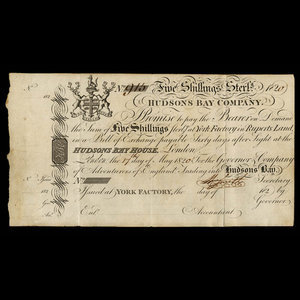 No
182
No 915 Five Shillings Sterlg. 1820
HUDSONS BAY COMPANY.
Promise to pay the Bearer on Demand
the Sum of Five Shillings sterlg at York Factory in Ruperts Land
in a Bill of Exchange payable Sixty days after Sight at the
HUDSONS BAY HOUSE, London.
London the 17th day of May 1820 for the Governor & Company
of Adventurers of England Trading into Hudsons Bay.
No Secretary
Issued at YORK FACTORY, the day of 182
Governor
Ent. Accountant